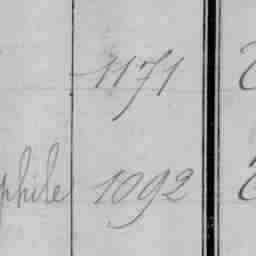 1171
phile 1092